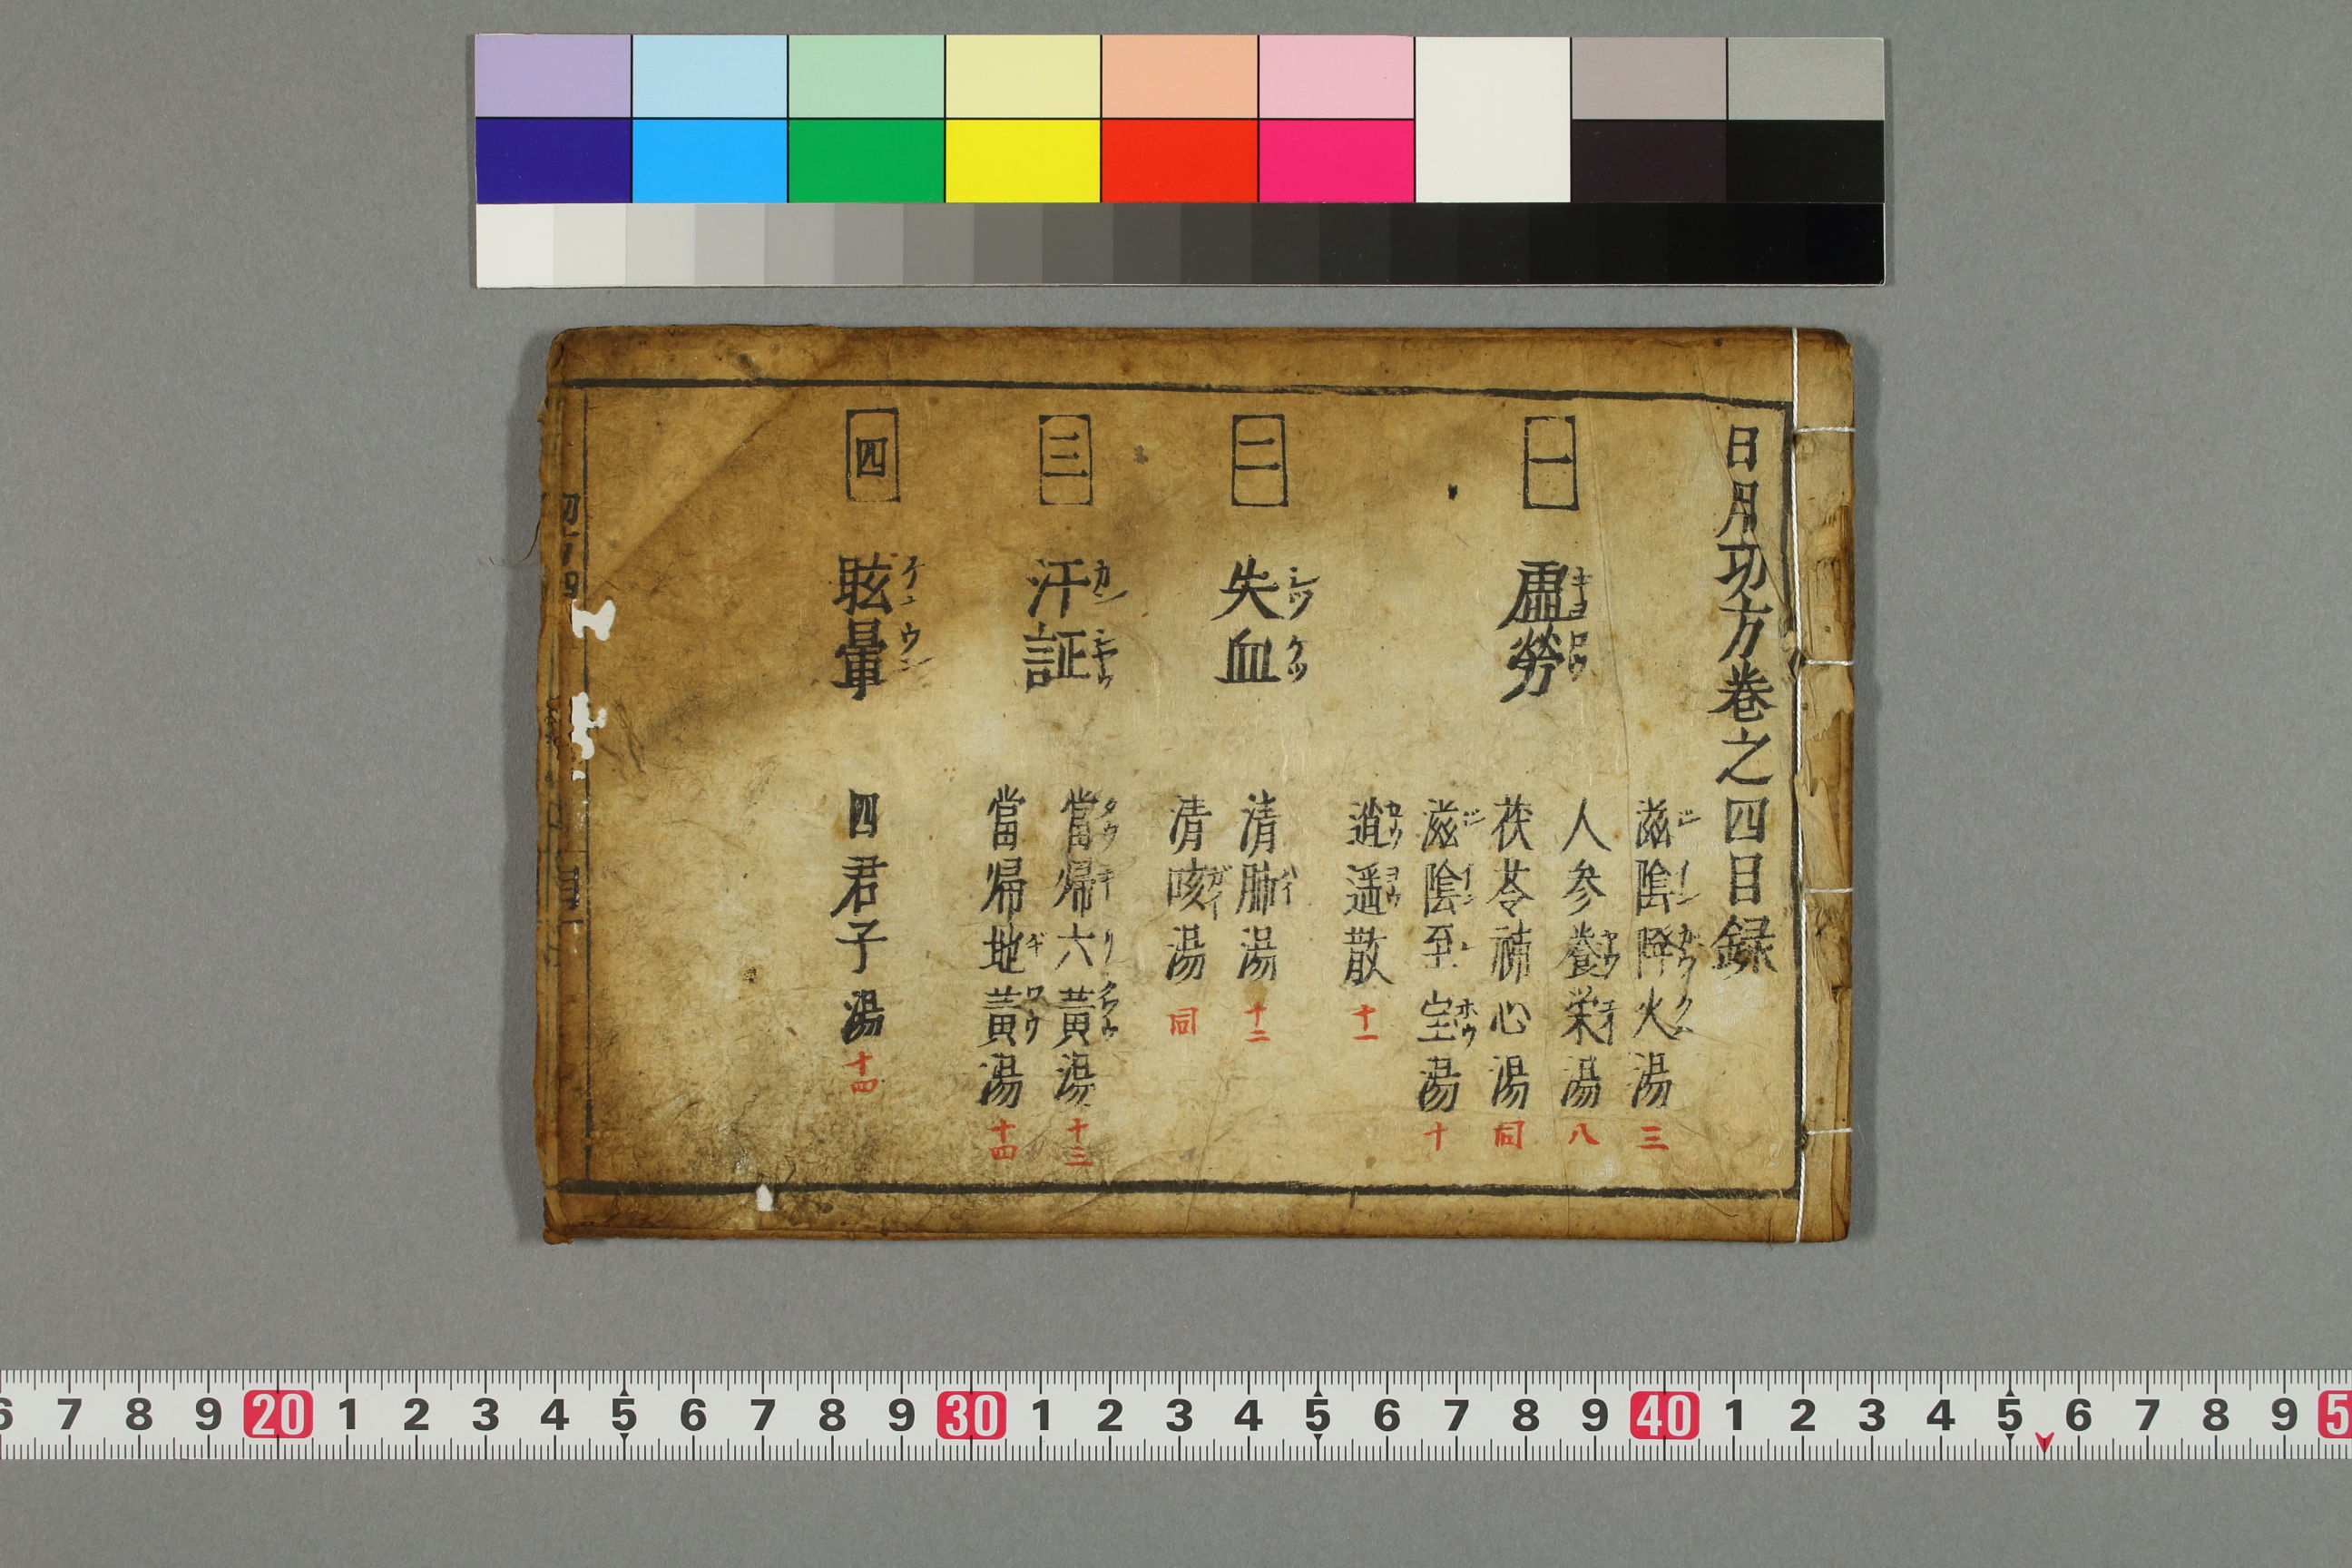 日月功方巻之四目録
一 虚勞
滋陰降火湯 三
人参養栄湯 八
茯苓補心湯 同
滋陰至宝湯 十
逍遥散 十一
二 失血
清肺湯 十二
清咳湯 同
三 汗証
當帰六黄湯 十三
當帰地黄湯 十四
四 眩暈
四君子湯 十四
6 7 8 9 20 1 2 3 4 5 6 7 8 9 30 1 2 3 4 5 6 7 8 9 40 1 2 3 4 5 6 7 8 9 5